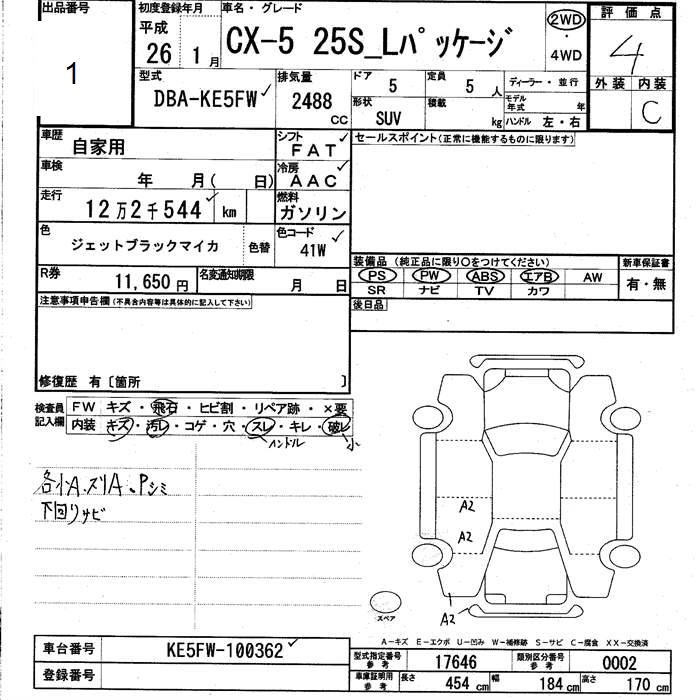 出品番号
1
初度登録年月
平成
26 1月
車名・グレード
CX-5 25S_Lパッケージ
2WD
・
4WD
評価点
4
外装 内装
C
型式
DBA-KE5FW
排気量
2488
CC
ドア
5
定員
5人
形状
SUV
積載
kg
ディーラー・並行
モデル年式 年
ハンドル 左・右
車歴
自家用
シフト
FAT
車検
年 月( 日)
冷房
AAC
走行
12万2千544 km
燃料
ガソリン
色
ジェットブラックマイカ
色替
色コード
41W
R券
11,650円
名変通知期限
月 日
セールスポイント(正常に機能するものに限ります)
装備品 (純正品に限り○をつけてください)
PS PW ABS エアB AW
SR ナビ TV カワ
新車保証書
有・無
後日品
注意事項申告欄(不具合内容等は具体的に記入して下さい)
修復歴 有〔箇所 〕
検査員記入欄
FW キズ・飛石・ヒビ割・リペア跡・×要
内装 キズ・汚レ・コゲ・穴・スレ・キレ・破レ
ハンドル
小
各小A.スリA、Pシミ
下回りサビ
A2
A2
A2
スペア
A-キズ E-エクボ U-凹み W-補修跡 S-サビ C-腐食 XX-交換済
車台番号
KE5FW-100362
登録番号
型式指定番号
参考
17646
類別区分番号
参考
0002
車庫証明用
参考
長さ
454cm
幅
184cm
高さ
170cm